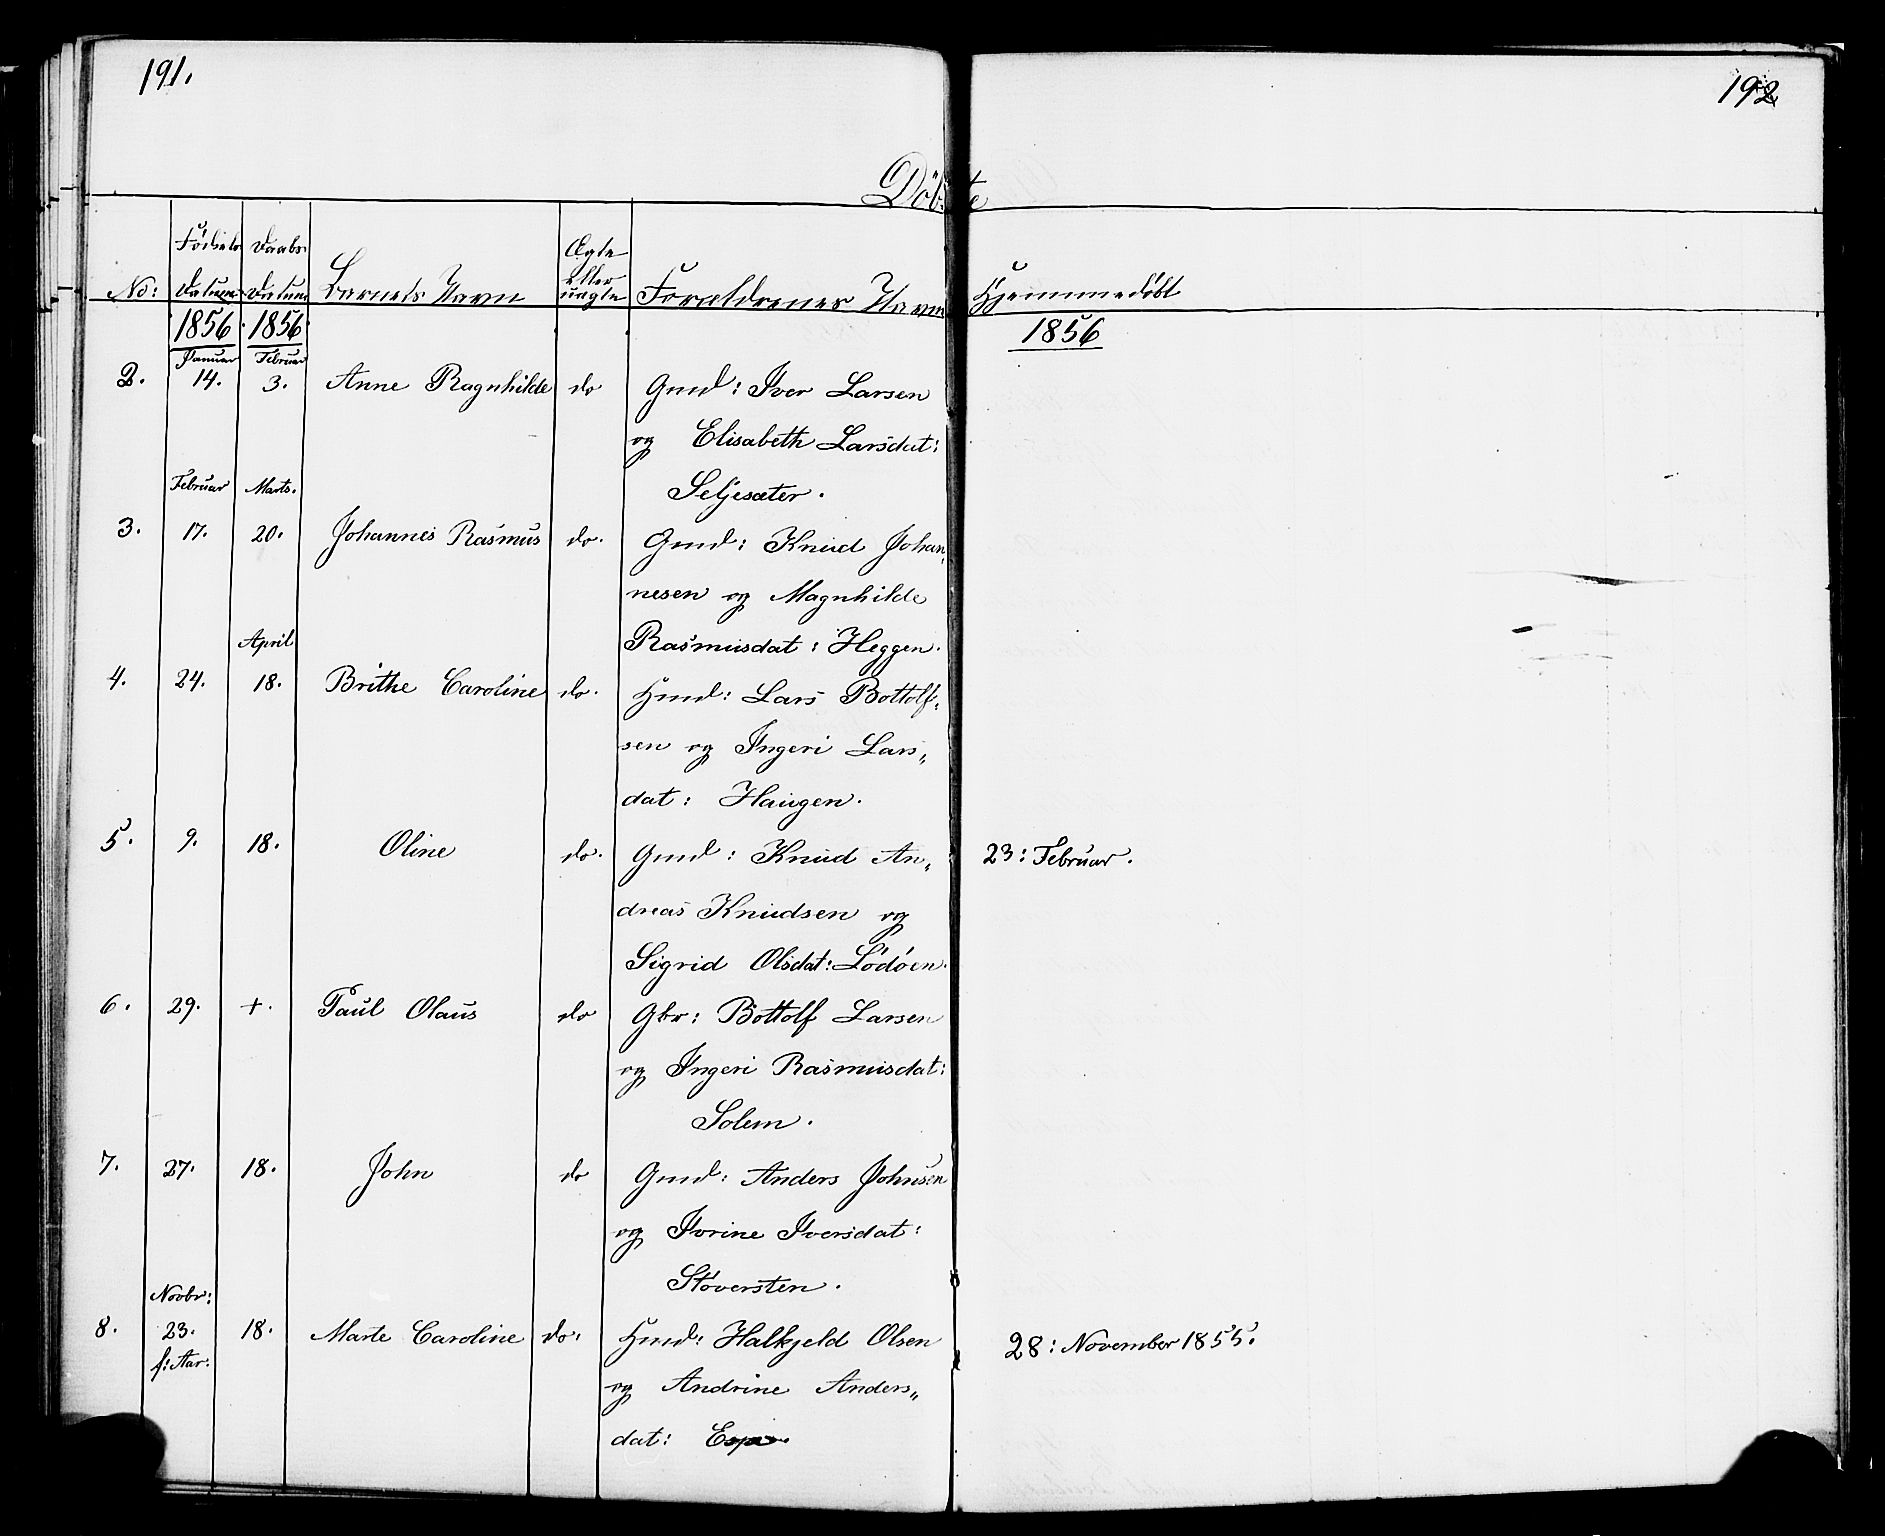 191.
192
Döbte
No:
Födsels Datum
Daabs Datum
Barnets Navn
Ægte eller uægte
Forældrenes Navn
Hjemmedöbt
1856 1856 1856
Januar Februar
2. 14. 3. Anne Ragnhilde do Gmd: Iver Larsen
og Elisabeth Larsdat:
Februar Marts. Seljesæter.
3. 17. 20. Johannes Rasmus do. Gmd: Knud Johan„
nesen og Magnhilde
April Rasmusdat: Heggen.
4. 24. 18. Brithe Caroline do. Hmd: Lars Bottolf„
sen og Ingeri Lars„
dat: Haugen.
5. 9. 18. Oline do. Gmd: Knud An„ 23: Februar.
dreas Knudsen og
Sigrid Olsdat: Lödöen.
6. 29. +. Paul Olaus do Gbr: Bottolf Larsen
og Ingeri Rasmusdat:
Solem.
7. 27. 18. John do Gmd: Anders Johnsen
og Ivrine Iversdat:
Stöversten.
Novbr:
8. 23. 18. Marte Caroline do. Hmd: Halkjeld Olsen 28: November 1855.
f: Aar: og Andrine Anders„
dat: